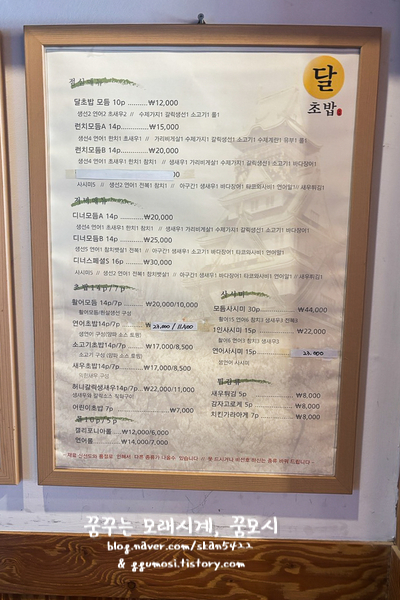 달
초밥
점심메뉴
달초밥 모듬 10p ..........₩12,000
생선2 연어2 초새우2 // 수제가지1 갈릭생선1 소고기1 롤1
런치모듬A 14p..........₩15,000
생선4 연어1 초새우1 한치1 참치1 // 가리비게살1 수제가지1 갈릭생선1 소고기1 수제계란1 유부1 롤1
런치모듬B 14p..........₩20,000
생선4 연어1 초새우1 한치1 참치1 // 생새우1 가리비게살1 수제가지1 갈릭생선1 소고기1 바다장어1
사시미5 // 생선2 연어1 전복1 참치1 // 아구간1 생새우1 바다장어1 타코와사비1 연어알1 // 새우튀김1
저녁메뉴
디너모듬A 14p..........₩20,000
생선4 연어1 초새우1 한치1 참치1 // 생새우1 가리비게살1 수제가지1 갈릭생선1 소고기1 바다장어1
디너모듬B 14p..........₩25,000
생선5 연어1 참치뱃살1 전복1 // 아구간1 생새우1 소고기1 바다장어1 타코와사비1 연어알1
디너스페셜S 16p..........₩30,000
사시미5 // 생선2 연어1 전복1 참치뱃살1 // 아구간1 생새우1 바다장어1 타코와사비1 연어알1 // 새우튀김1
초밥14p/7p
활어모듬 14p/7p ......₩20,000/10,000
활어모듬/흰살생선 구성
연어초밥14p/7p ......₩ 23,000 / 11,500
생연어 구성(양파 소스 토핑)
소고기초밥14p/7p ....₩17,000/8,500
소고기 구성 (양파 소스 토핑)
새우초밥14p/7p ......₩17,000/8,500
허니갈릭생새우14p/7p ..₩22,000/11,000
어린이초밥 7p ..........₩7,000
롤10p/5p
캘리포니아롤......₩12,000/6,000
연어롤..........₩14,000/7,000
사시미
모듬사시미 30p..........₩44,000
활어15 연어6 참치3 생새우3 전복3
1인사시미 15p..........₩22,000
활어6 연어3 참치3 생새우1
연어사시미 15p 23,000
생연어 사시미
튀김류
새우튀김 5p..........₩8,000
감자고로케 5p..........₩8,000
치킨가라아게 7p..........₩8,000
꿈꾸는 모래시계, 꿈모시
blog.naver.com/skan5422
& ggumosi.tistory.com